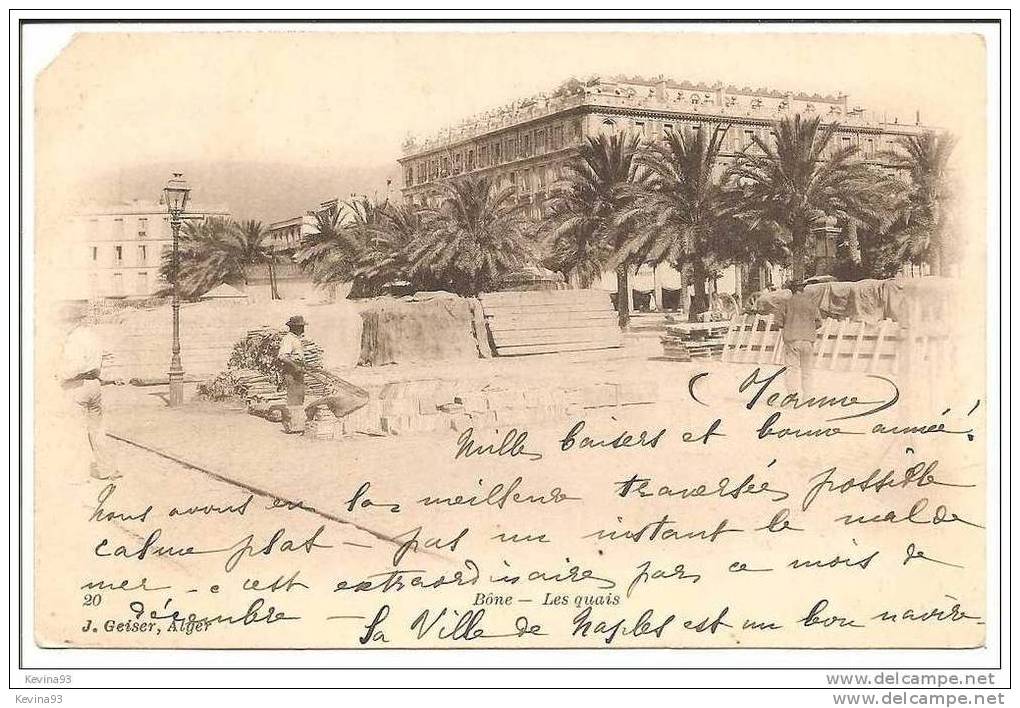 ( Jeanne )
Mille baisers et bonne année!
Nous avons eu la meilleure traversée possible
calme plat - pas un instant le mal de
mer - c'est extraordinaire par ce mois de
20
Bône — Les quais
décembre - La Ville de Naples est un bon navire -
J. Geiser, Alger
Kevina93
www.delcampe.net
Kevina93
www.delcampe.net